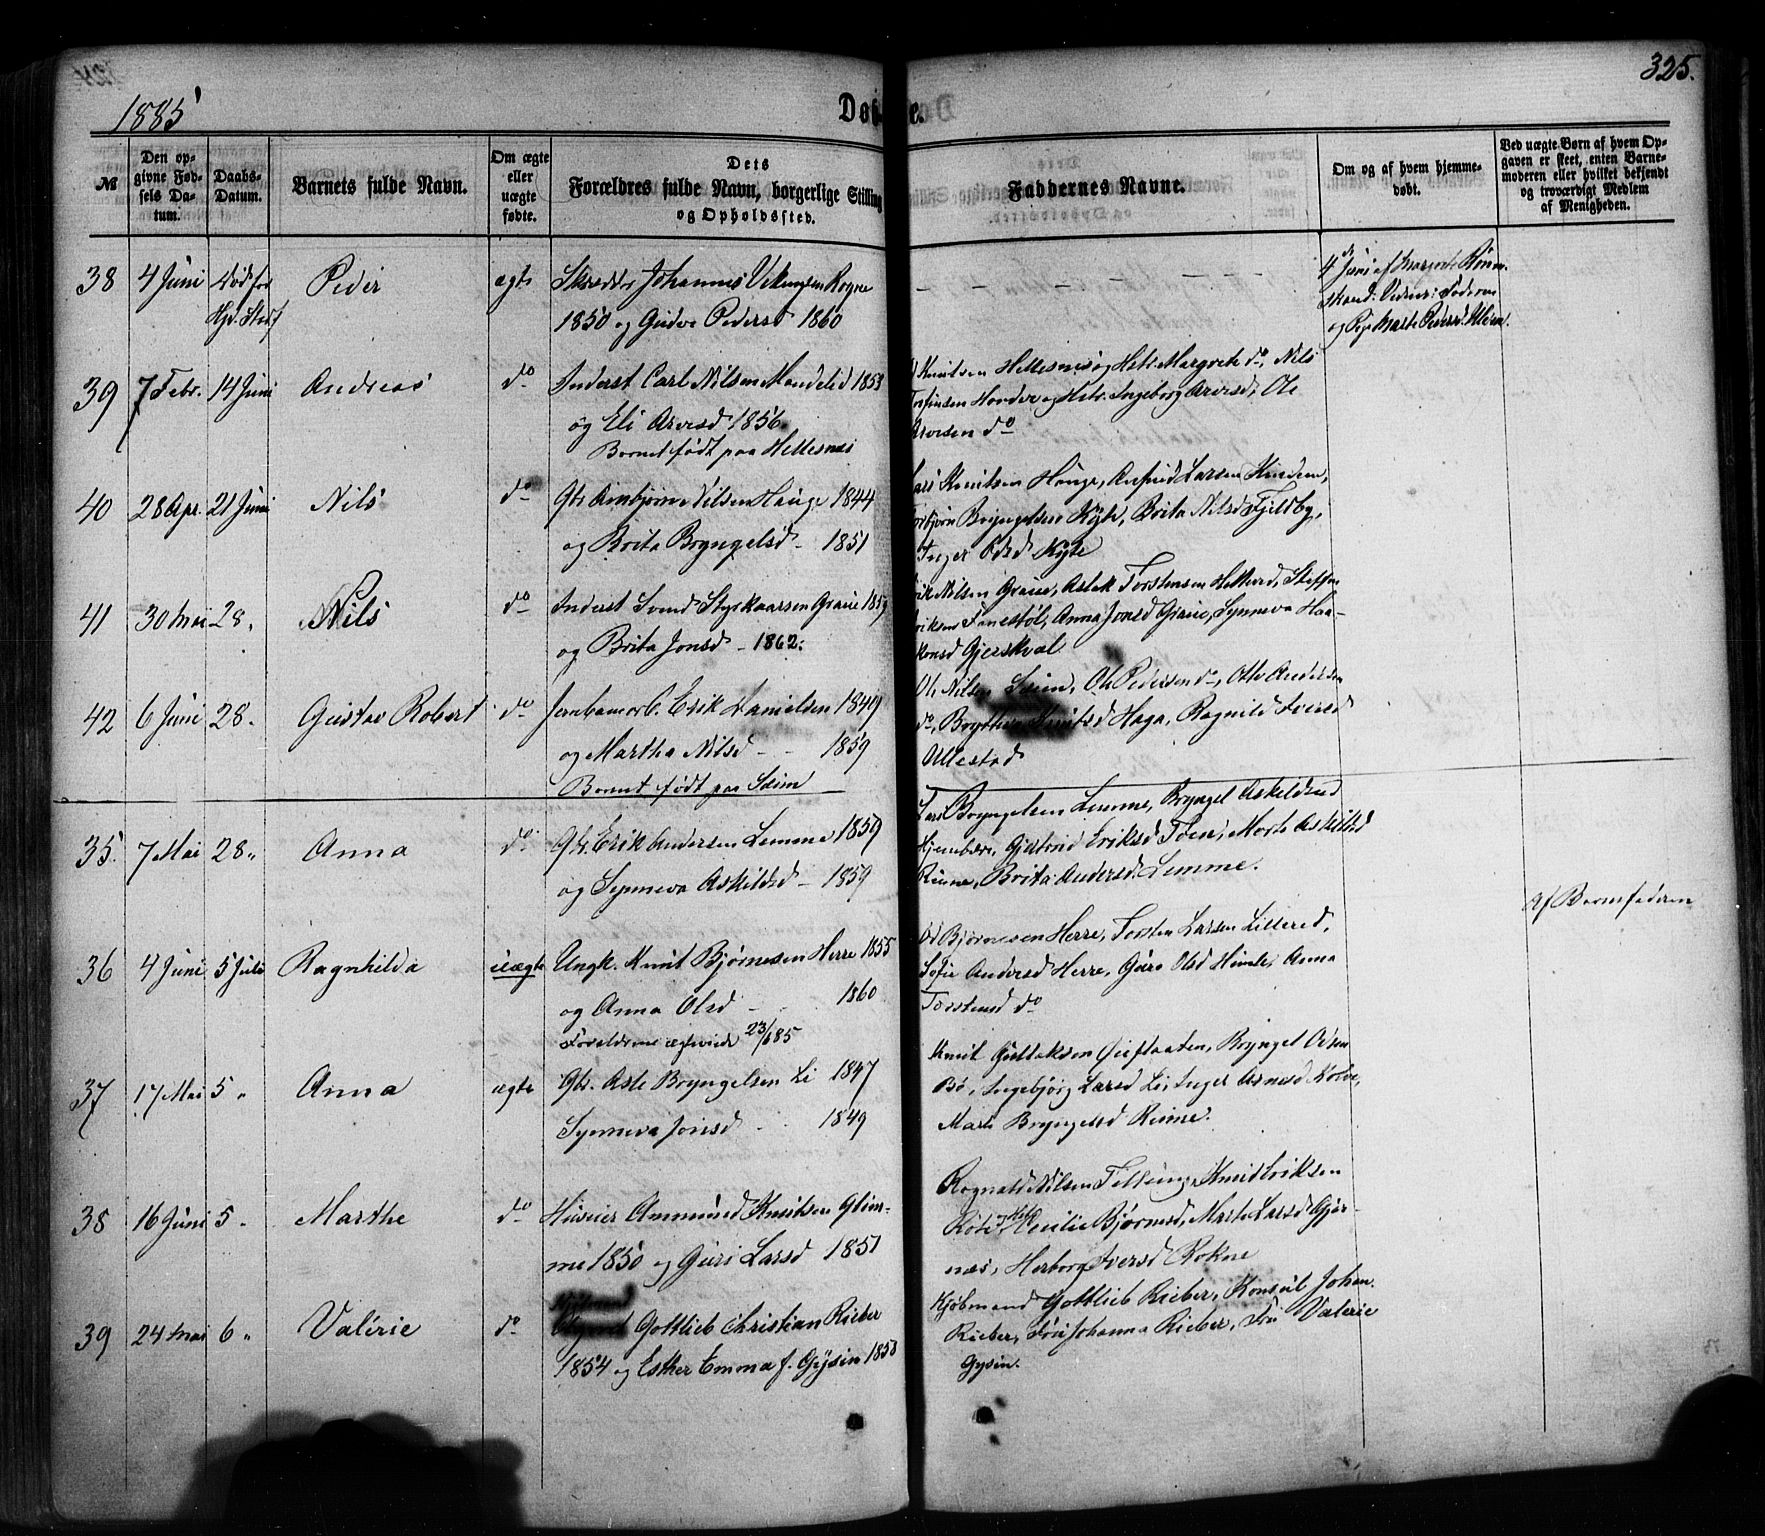 325.
1885
Døbte.
№
Den opgivne Fødsels Datum.
Daabs-Datum.
Barnets fulde Navn.
Om ægte eller uægte fødte.
Dets Forældres fulde Navn, borgerlige Stilling og Opholdssted.
Faddernes Navne.
Om og af hvem hjemmedøbt.
Ved uægte Børn af hvem Opgaven er skeet, enten Barnemoderen eller hvilket bekjendt og troværdigt Medlem af Menigheden.
38 4 Juni Død før Peder ægte Johannes Rogne
1850 og Gudve Pedersd 1860
4 Juni af
39 7 Febr. 14 Juni Andreas do Inderst Carl Nilsen Mandelid
og Eli Arvesd 1856
Barnet født paa Hellesnæs
Knutsen Hellesnæs og Hstr. Margrete do, Nils
og Hstr. Ingeborg Arvesd, Ole
Arvesen do
40 28 Apr. 21 Juni Nils do Gbr. Arnbjørn Nilsen Hauge 1844
og Brita Bryngelsd - 1851
Lars Knutsen Hauge, Larsen
Bryngelsen Kyte, Brita Nilsd Fjeldby,
Inger Odsd Kyte
41 30 Mai 28 „ Nils do Inderst Svend Styrkaarsen Graue 1859
og Brita Jonsd - 1862.
Nilsen Graue, Aslak Torstensen
Anna Jonsd Graue, Synneva Haa-
konsd Gjerskval
42 6 Juni 28 „ Gustav Robert do Jernbanearb. Erik Danielsen 1849
og Martha Nilsd - - 1859
Barnet født paa Seim
Ole Nilsen Seim, Ole Pedersen do, Otto Andersen
do, Knutsd Haga, Ragnild Iversd
Ullestad
35. 7 Mai 28 „ Anna do Gbr. Erik Andersen Lemme 1859
og Synneva Askildsd - 1859
Lars Bryngelsen Lemme, Bryngel Askildsen
Gjertrud Eriksd Marte Askildsd
Rinne, Brita Andersd Lemme.
36 4 Juni 5 Juli Ragnhilda uægte Ungk. Knut Bjørnesen Herre 1855
og Anna Olsd - - 1860
Forældrene ægteviede 23/6 85
Bjørnesen Herre, Torsten Larsen Lillered,
Sofie Andersd Herre, Guro Olsd Himle, Anna
Torstensd do
Af Barnefaderen
37 17 Mai 5 „ Anna ægte Gbr. Asle Bryngelsen Li 1847
Synneva Jonsd - - 1849
Knut Bryngel Odsen
Bø, Ingebjørg Larsd Li, Inger Arnesd
Marta Bryngelsd Rinne.
38 16 Juni 5 „ Marthe do Huseier Ammund Knutsen Glim-
me 1850 og Guri Larsd 1851
Rognald Nilsen Knut Eriksen
Cecilie Bjørnesd, Marta Larsd Gjer-
næs, Herborg Iversd Rokne
39 24 Mai 6 „ Valérie do Gottlieb Christian Rieber
1854 og Esther Emma f. Gysin 1858
Kjøbmand Gottlieb Rieber, Konsul Johan
Rieber, Fru Johanna Rieber, Frü Valerie
Gysin.